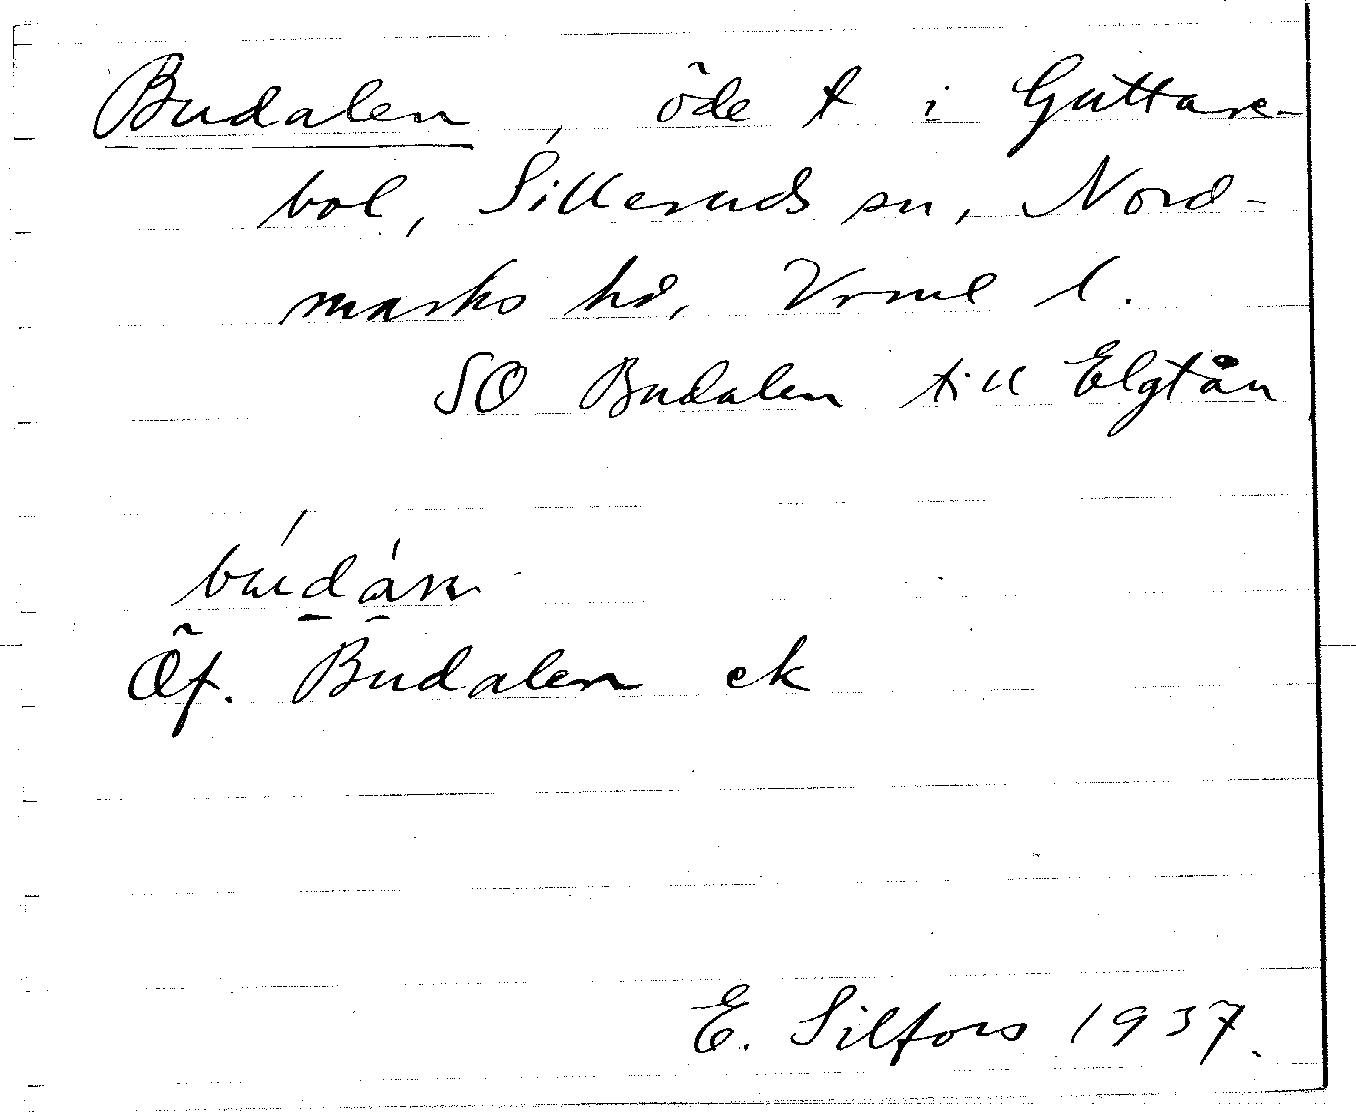 Budalen, öde t i Guttare-
bol, Silleruds sn, Nord-
marks hd, Vrml l.
SO Budalen till Elgtån
búdán
Öf. Budalen ek
E. Silfors 1937.